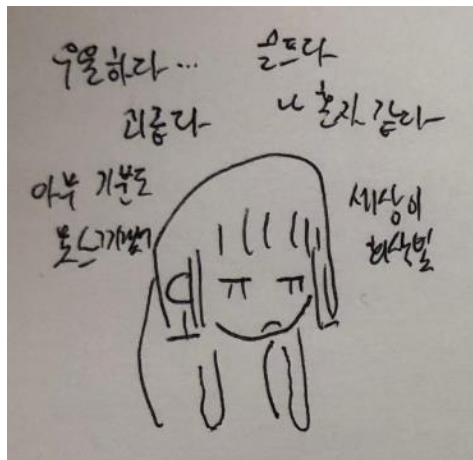 우울하다...
슬프다
괴롭다
나 혼자 같다
아무 기분도
못 느끼겠어
세상이
회색빛